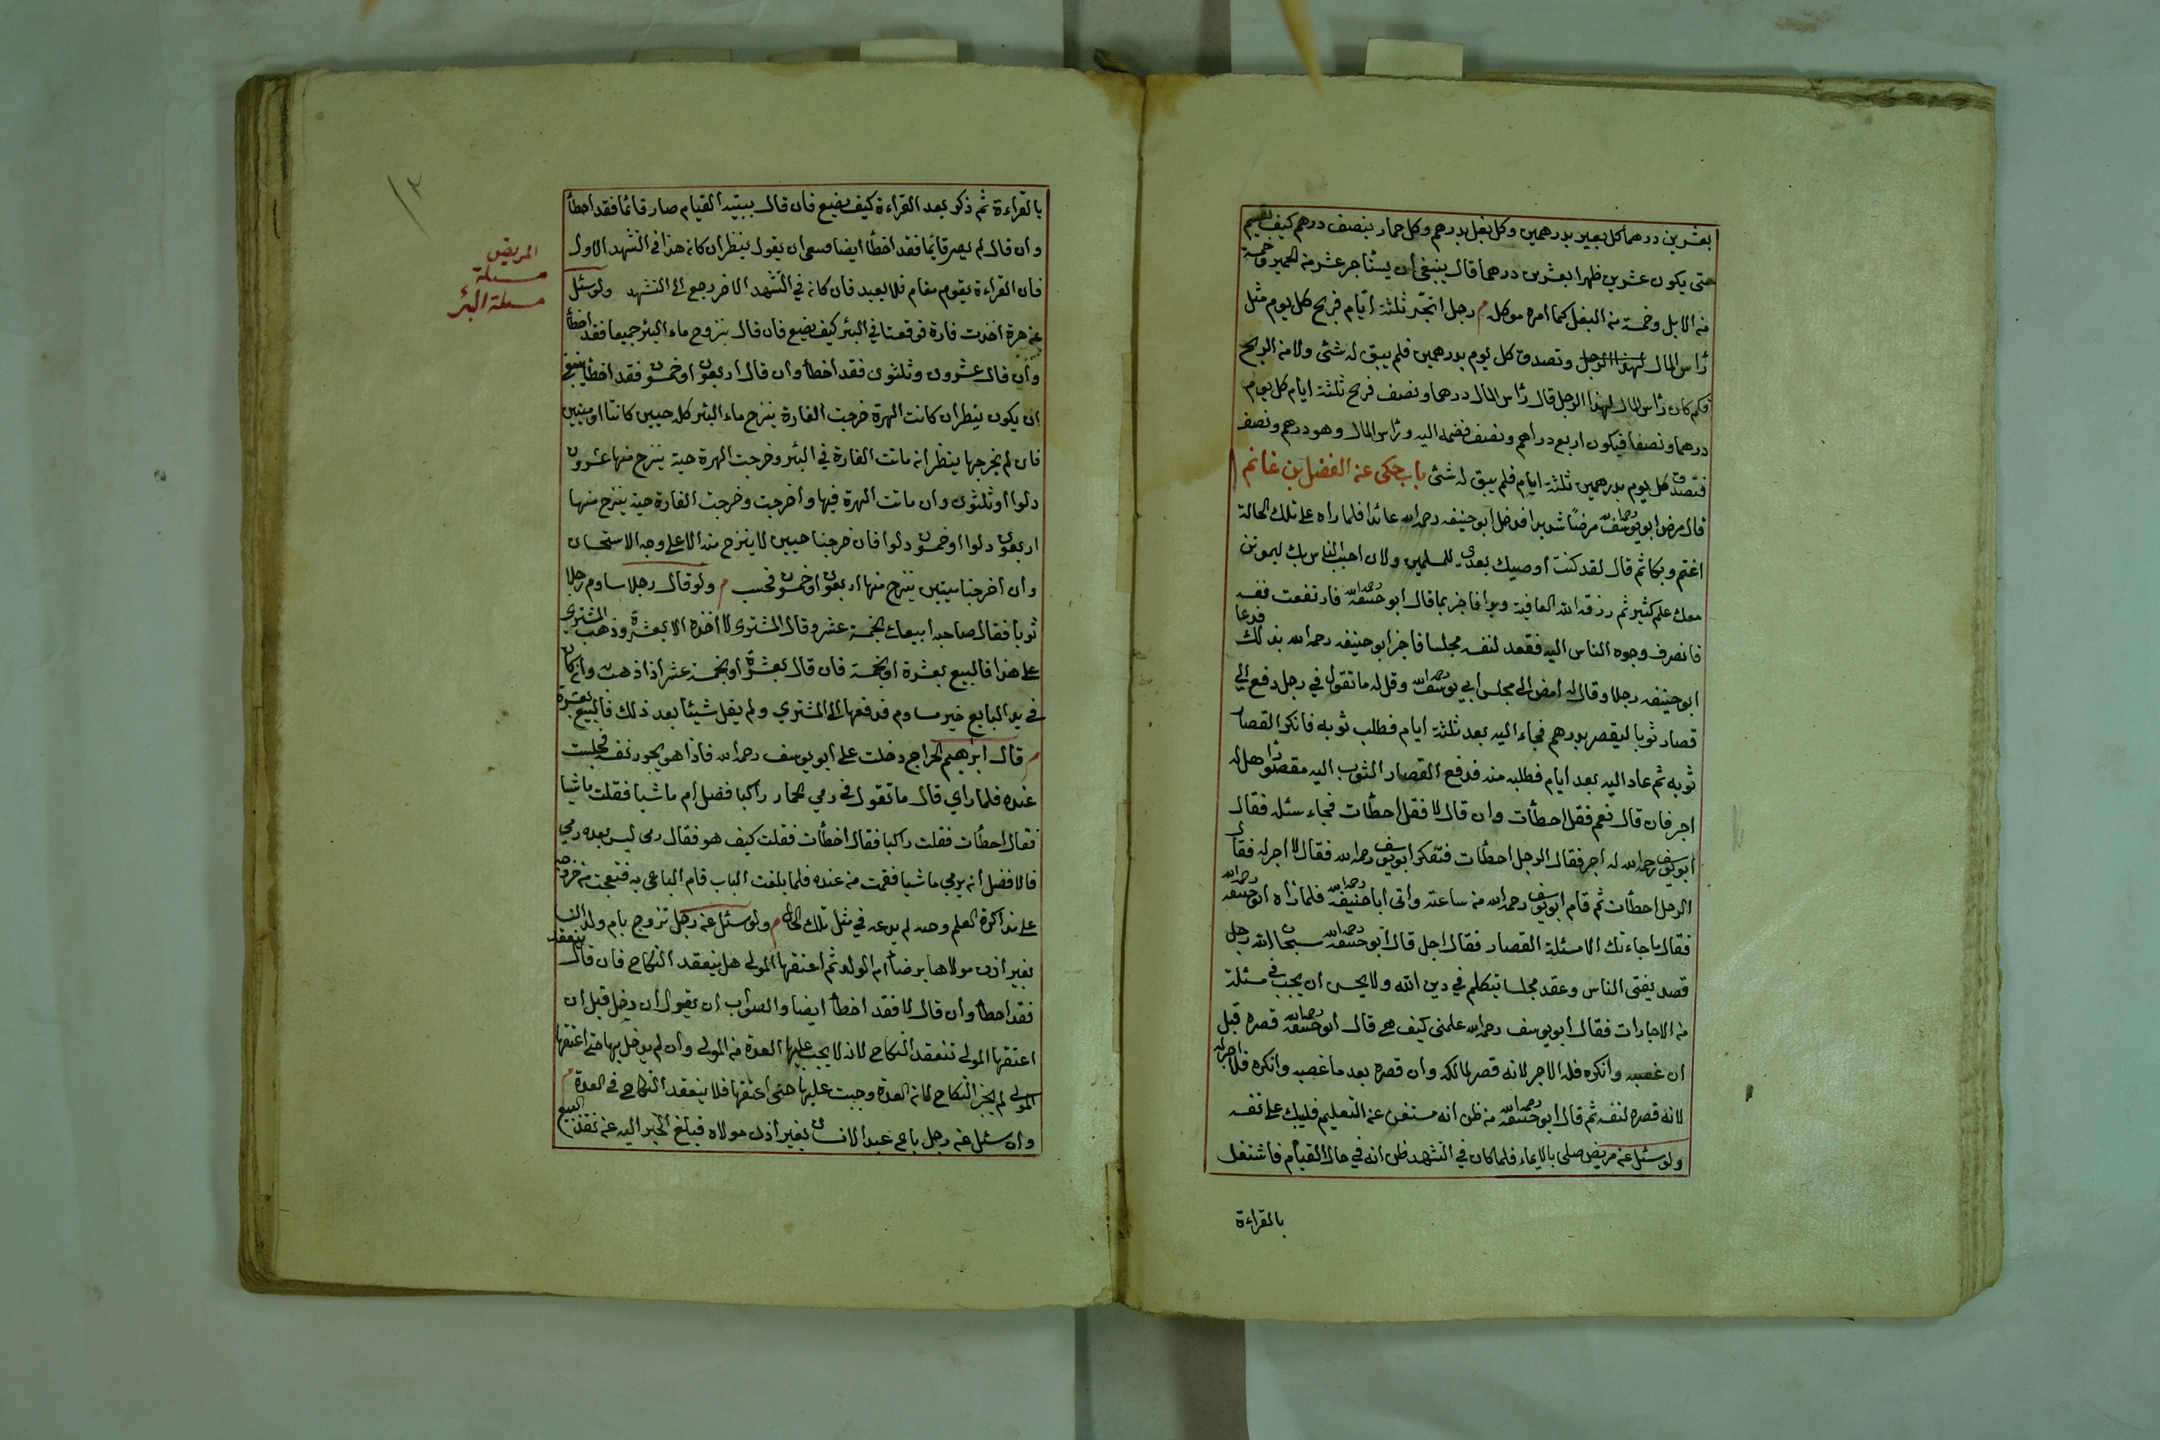 بعشرين درهما كل بعير بدرهمين وكل بغل بدرهم وكل حمار بنصف درهم كيف يقسم
حتى يكون عشرين ظهرا بعشرين درهما قال ينبغي ان يستأجر عشر من الحمير وخمسة
من الابل وخمسة من البغل كما امره موكله م رجل اتجر ثلثة ايام فربح كل يوم مثل
رأس المال لهذا الرجل وتصدق كل يوم بدرهمين فلم يبق له شئ ولا من الربح
فكم كان رأس المال لهذا الرجل قال رأس المال درهما ونصف فربح ثلثة ايام كل يوم
درهما ونصفا فيكون اربع دراهم ونصف فضمه اليه ورأس المال وهو درهم ونصف
فتصدق كل يوم بدرهمين ثلثة ايام فلم يبق له شئ باب حكى عن الفضل بن غانم
قال مرض ابو يوسف رحمه الله مرضا شديدا فدخل ابو حنيفه رحمه الله عائدا فلما راه على تلك الحالة
اغتم وبكا ثم قال لقد كنت اوصيك بعدي للمسلمين ولان احب الناس بك ليموتن
معك علم كثير ثم رزقه الله العافية وبرا فاخبر بما قال ابو حنيفه رحمه الله فارتفعت نفسه
فانصرف وجوه الناس اليه فقعد لنفسه مجلسا فاخبر ابو حنيفه رحمه الله بذلك فدعا
ابو حنيفه رجلا وقال له امض الى مجلس ابي يوسف رحمه الله وقل له ما تقول في رجل دفع الى
قصار ثوبا ليقصر بدرهم فجاء اليه بعد ثلثة ايام فطلب ثوبه فانكر القصار
ثوبه ثم عاد اليه بعد ايام فطلبه منه فدفع القصار الثوب اليه مقصورا هل له
اجر فان قال نعم فقل احطأت وان قال لا فقل احطأت فجاء سئله فقال
ابو يوسف رحمه الله له اجر فقال الرجل احطأت فتفكر ابو يوسف رحمه الله فقال لا اجر له فقال
الرجل احطأت ثم قام ابو يوسف رحمه الله من ساعته واتى ابا حنيفه رحمه الله فلما رأه ابو حنيفه رحمه الله
فقال ما جاءتك الا مسئلة القصار فقال اجل قال ابو حنيفه رحمه الله سبحان الله رجل
قصد يفتى الناس وعقد مجلسا يتكلم في دين الله ولا يحسن ان يجيب في مسئلة
من الاجارات فقال ابو يوسف رحمه الله علمني كيف هي قال ابو حنيفه رحمه الله قصره قبل
ان غصبه وانكره فله الاجر لانه قصر لمالكه وان قصره بعد ما غصبه وانكره فلا اجر له
لانه قصره لنفسه ثم قال ابو حنيفه رحمه الله من ظن انه مستغن عن التعليم فليبك على نفسه
ولو سئل عن مريض صلى بالايماء فلما كان في التشهد ظن انه في حال القيام فاشتغل
بالقراءة
بالقراءة ثم ذكر بعد القراءة كيف يضيع فان قال ببيته القيام صار قائما فقد احطأ
وان قال لم يصر قائما فقد اخطأ ايضا فسعى ان يقول ينظر ان كانه هذا في التشهد الاول
فان القراءة يقوم مقام فلا يعيد فان كانه في التشهد الاخر رجع الى التشهد ولو سئل
عن هرة اخدت فارة فوقعتا في البئر كيف يضيع فان قال ينزوح ماء البئر جميعا فقد اخطأ
وان قال عشرون وثلثون فقد اخطأ وان قال اربعون او خمسون فقد اخطأ ينبغي
ان يكون ينظر ان كانت الهرة خرجت الفارة ينزح ماء البئر كله حيين كانتا او ميتين
فان لم يخرجها ينظر انه ماتت الفارة في البئر وخرجت الهرة حية ينزح منها عشرون
دلوا او ثلثون وان ماتت الهرة فيها واخرجت وخرجت الفارة حية ينزح منها
اربعون دلوا او خمسون دلوا فان خرجنا حيين لا ينزح منه الا على وجه الاستحسان
وان اخرجنا ميتين ينزح منها اربعون او خمسون فحسب م ولو قال رجلا ساوم رجلا
ثوبا فقال صاحبه ابيعك بخمسة عشر وقال المشتري لا اخذه الا بعشرة وذهب المشتري
على هذا فالبيع بعشرة او بخمسة فان قال بعشرة او بخمسة عشر اذا ذهب وان كان
في يد البايع خير مساوم فدفعها الى المشتري ولم يقل شيئا بعد ذلك فالبيع بعشرة
م قال ابراهيم الجراح دخلت على ابو يوسف رحمه الله فاذا هو يجود نفسه فجلست
عنده فلما راي قال ما تقول في رمي الجمار راكبا فضل ام ماشيا فقلت ماشيا
فقال احطأت فقلت راكبا فقال اخطأت فقلت كيف هو فقال رمى ليس بعده رمي
فالافضل انه يرمي ماشيا فقمت من عنده فلما بلغت الباب قام الباعي به فتعجت من حرصه
على مذاكرة العلم وحد لم يدعه في مثل تلك الحاله م ولو سئل عن رجل تزوج بام ولد الناس
بغير اذن مولاها برضا ام الولد ثم اعتقها المولى هل ينعقد النكاح فان قال ينعقد
فقد احطأ وان قال لا فقد اخطأ ايضا والصواب ان يقول ان دخل قبل ان
اعتقها المولى تنعقد النكاح لانه لا يجب عليها العدة من المولى وان لم يدخل بها حتى اعتقها
المولى لم يجز النكاح لانه العدة وجبت عليها حتى اعتقها فلا ينعقد النكاح في العدة م
وان سئل عن رجل باع عبد الانسان بغير اذن مولاه فبلغ الخبر اليه عن نفذ البيع
المريض
مسئلة
مسئلة البئر
١٢